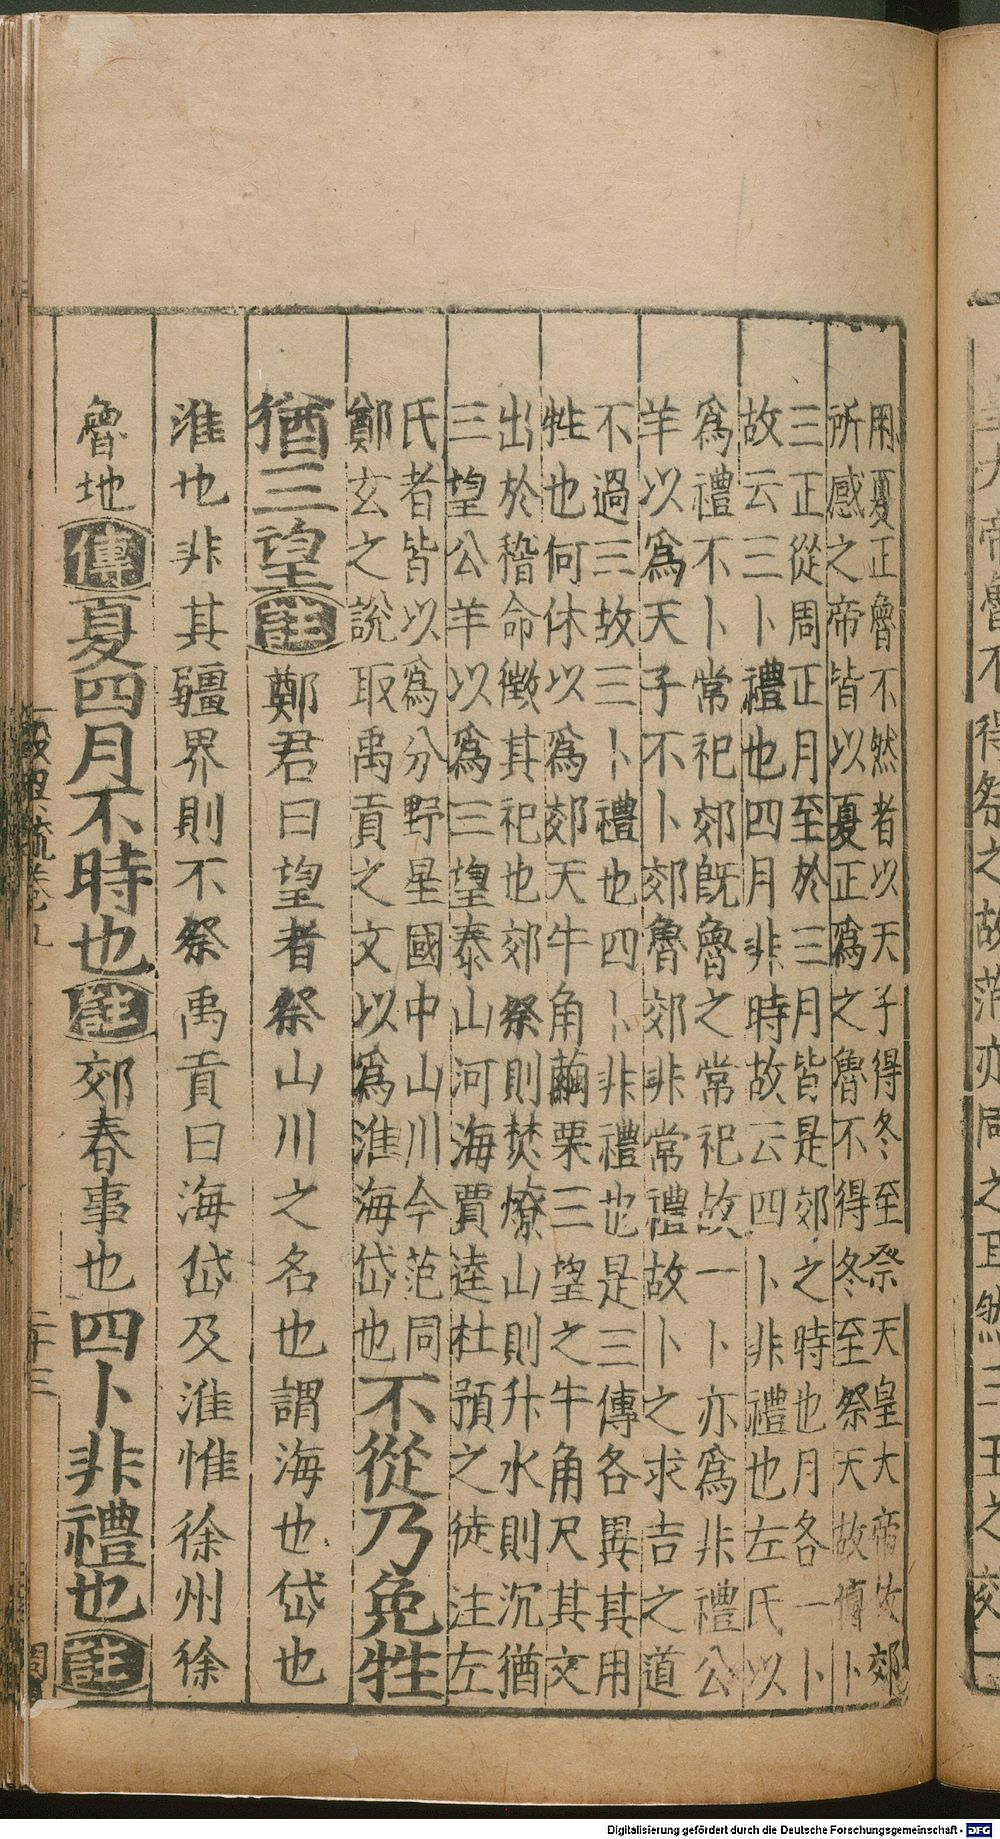 用夏正魯不然者以天子得冬至祭天皇大帝故郊
所感之帝皆以夏正爲之魯不得冬至祭天故傳卜
三正從周正月至於三月皆是郊之時也月各一卜
故云三卜禮也四月非時故云四卜非禮也左氏以
爲禮不卜常祀郊既魯之常祀故一卜亦爲非禮公
羊以爲天子不卜郊魯郊非常禮故卜之求吉之道
不過三故三卜禮也四卜非禮也是三傳各異其用
牲也何休以爲郊天牛角繭栗三望之牛角尺其文
出於稽命徵其祀也郊祭則焚燎山則升水則沉猶
三望公羊以爲三望泰山河海賈逵杜預之徒注左
氏者皆以爲分野星國中山川今范同
鄭玄之説取禹貢之文以爲淮海岱也不從乃免牲
猶三望註鄭君曰望者祭山川之名也謂海也岱也
淮也非其疆界則不祭禹貢曰海岱及淮惟徐州徐
魯地傳夏四月不時也註郊春事也四卜非禮也註
二十三
大帝魯不得祭之故范亦同之且然三王之郊一
Digitalisierung gefördert durch die Deutsche Forschungsgemeinschaft - DFG